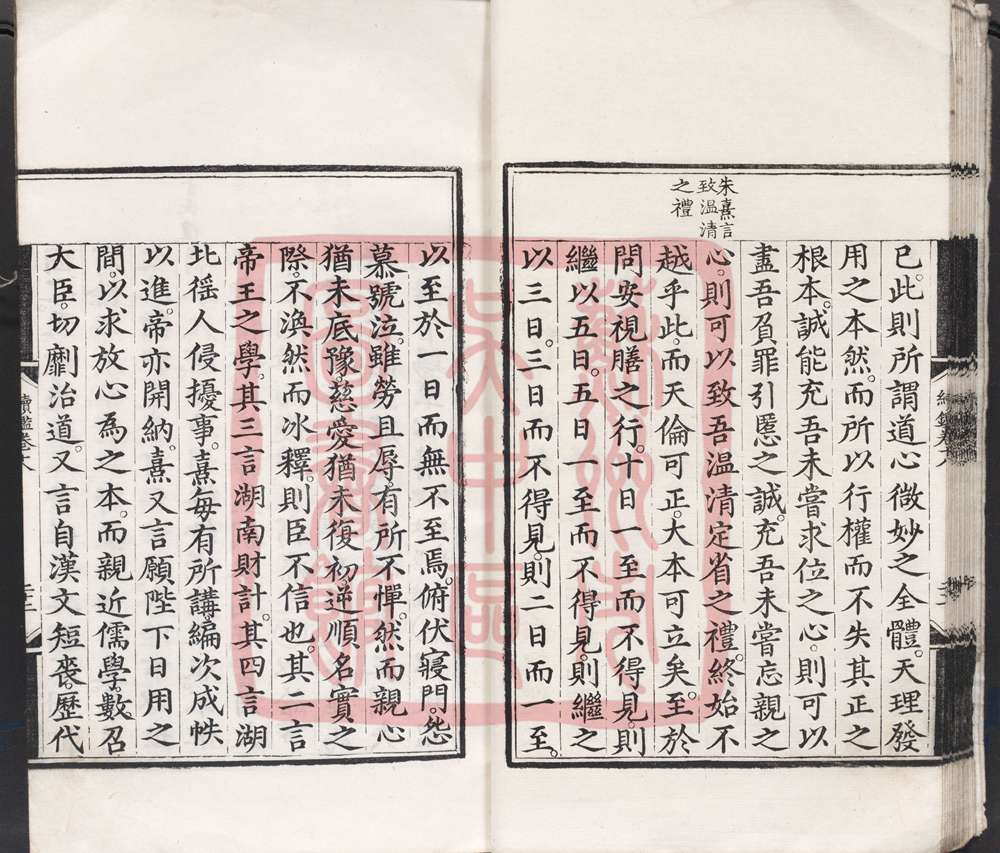 已。此則所謂道心微妙之全體。天理發
用之本然。而所以行權而不失其正之
根本。誠能充吾未嘗求位之心。則可以
盡吾負罪引慝之誠。充吾未嘗忘親之
朱熹言
致温凊
之禮
心。則可以致吾温清定省之禮。終始不
越乎此。而天倫可正。大本可立矣。至於
問安視膳之行。十日一至而不得見。則
繼以五日。五日一至而不得見。則繼之
以三日。三日而不得見。則二日而一至。
以至於一日而無不至焉。俯伏寢門。怨
慕號泣。雖勞且辱。有所不憚。然而親心
猶未底豫。慈愛猶未復初。逆順名實之
際。不渙然而冰釋。則臣不信也。其二言
帝王之學。其三言湖南財計。其四言湖
北徭人侵擾事。熹每有所講。編次成帙
以進。帝亦開納。熹又言願陛下日用之
間。以求放心為之本。而親近儒學。數召
大臣。切劘治道。又言自漢文短喪。歷代
續鑑卷八